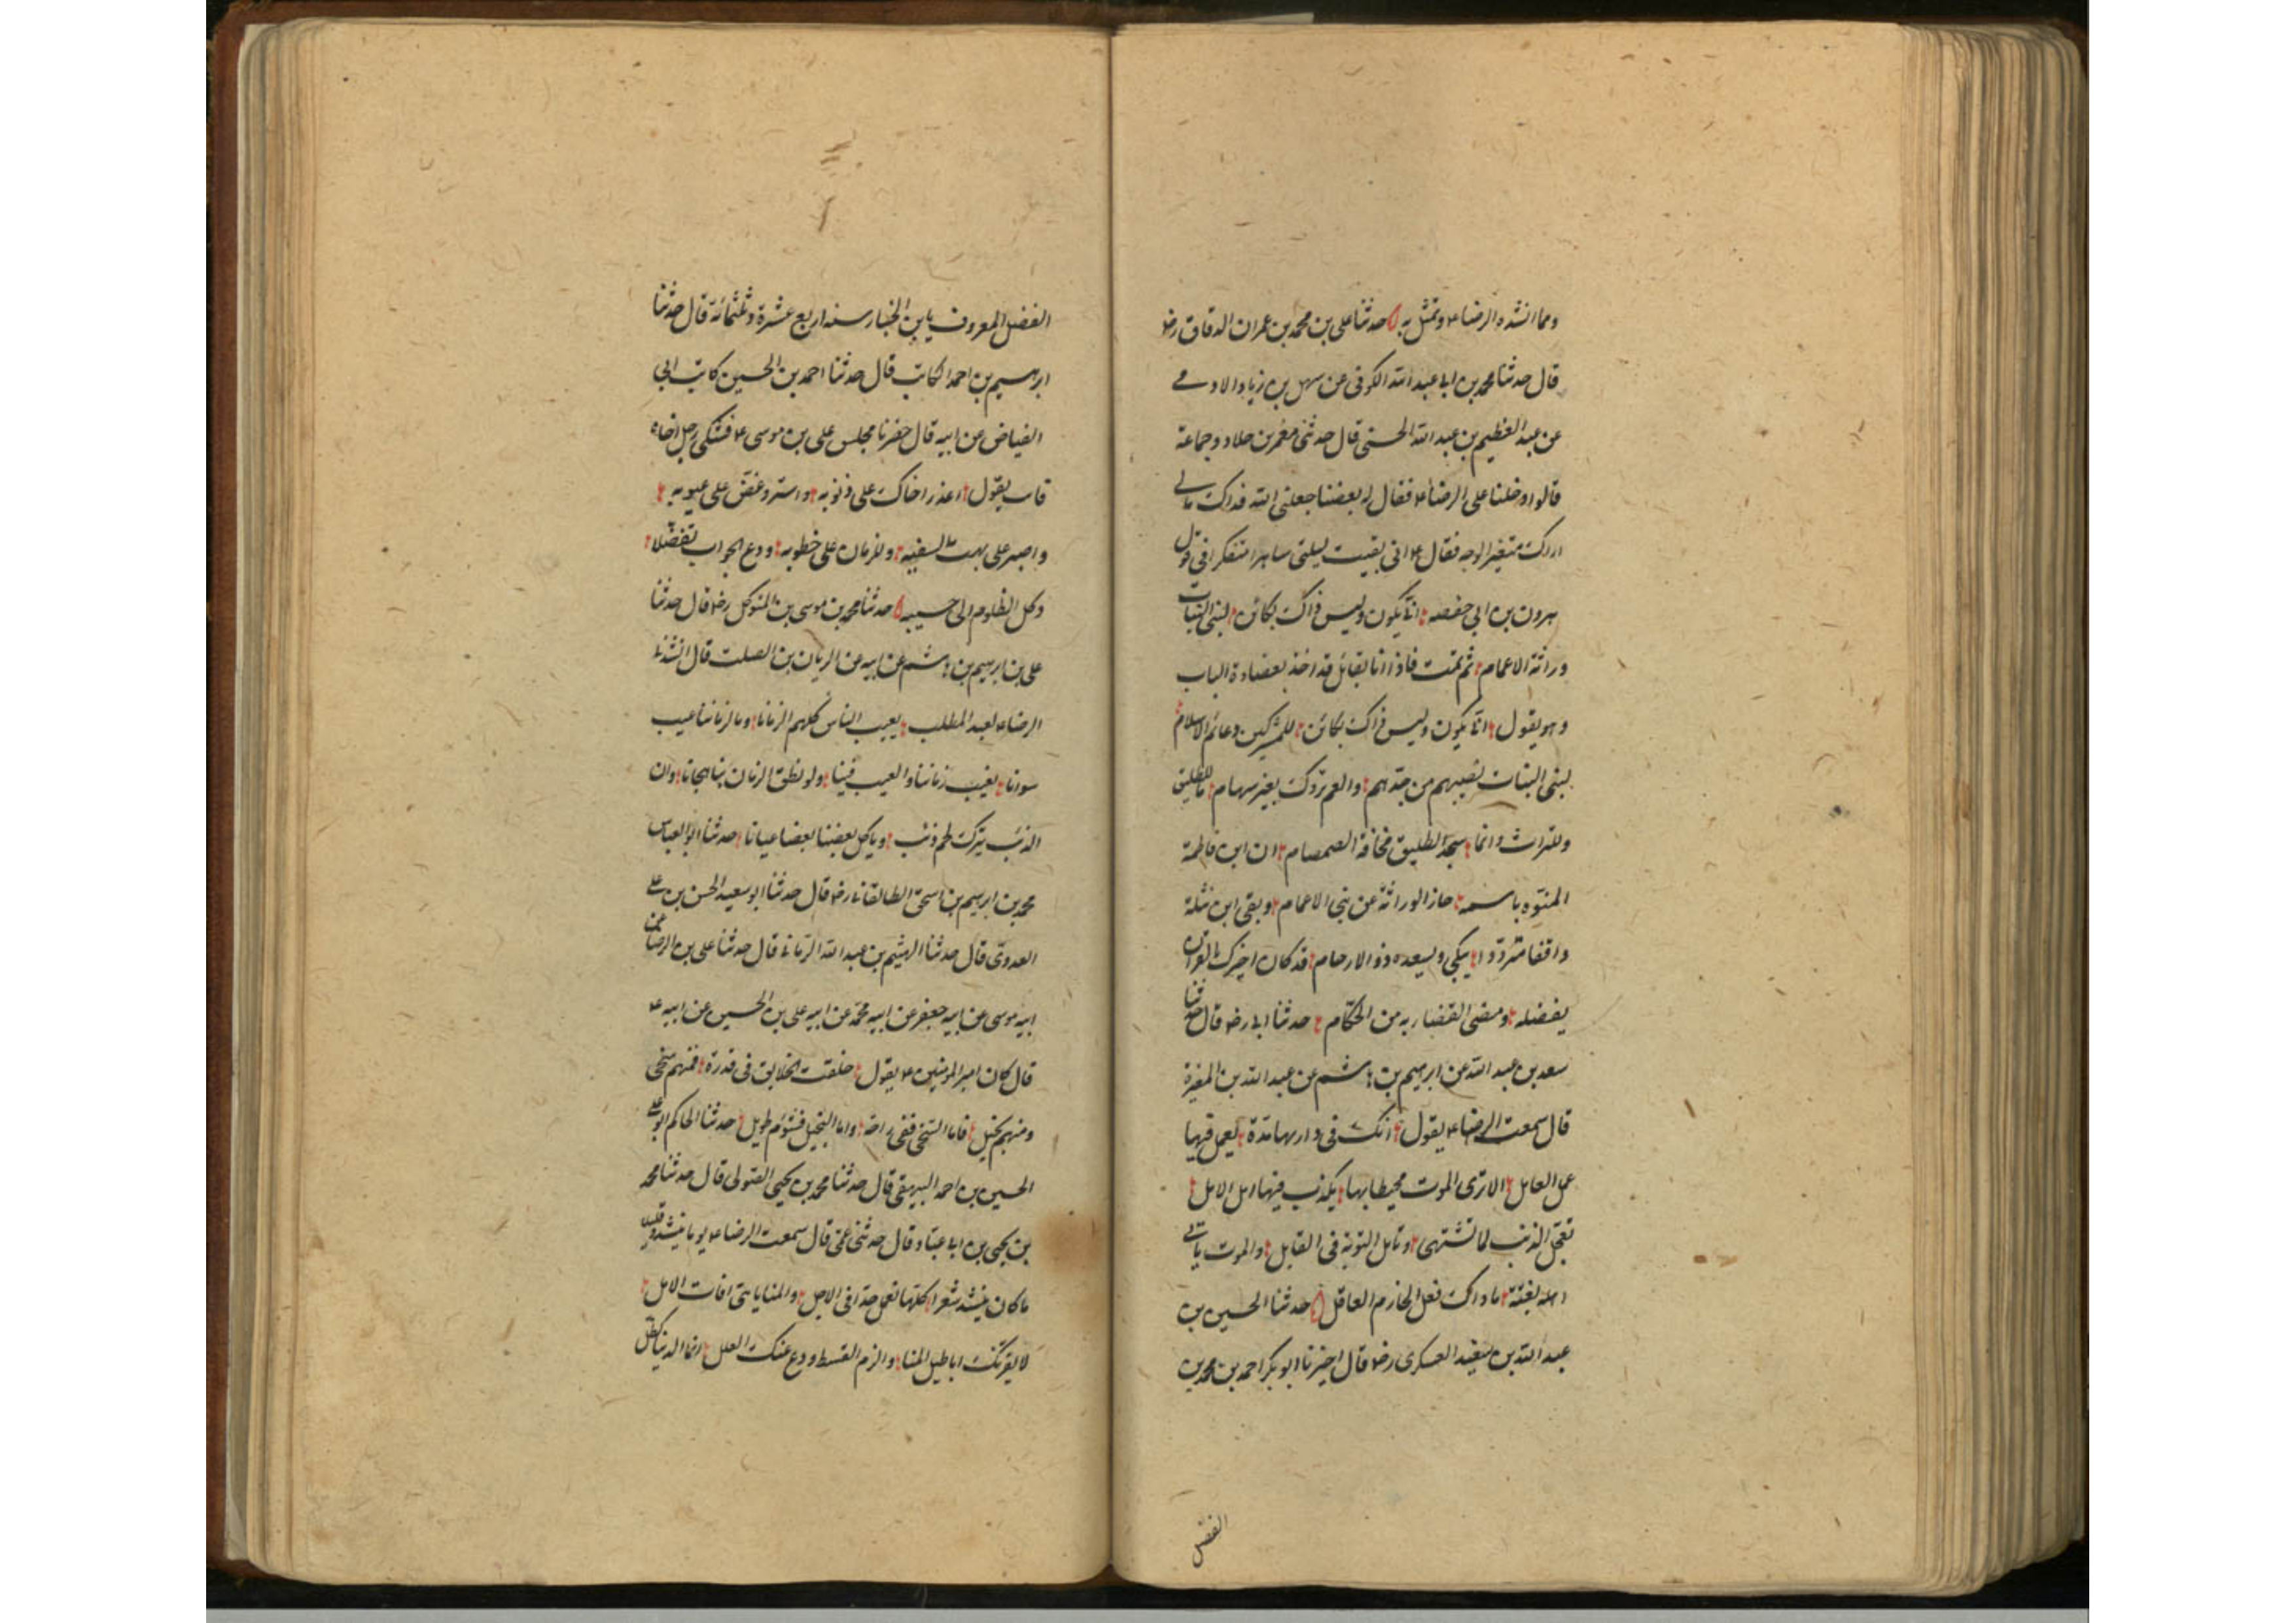 ومما انشده الرضا ع وتمثل به حدثنا على بن محمد بن عمران الدقاق رضه
قال حدثنا محمد بن ابى عبد الله الكوفى عن سهل بن زياد الادمى
عن عبد العظيم بن عبد الله الحسنى قال حدثنى معمر بن خلاد وجماعة
قالوا دخلنا على الرضا ع فقال له بعضنا جعلنى الله فداك مالى
اراك متغير الوجه فقال ع انى بقيت ليلتى ساهرا متفكرا فى قول
مرون بن ابى حفصه انى يكون وليس ذاك بكائن لبنى البنات
وراثة الاعمام ثم نمت فاذا انا بقائل قد اخذ بعضادة الباب
وهو يقول انى يكون وليس ذاك بكائن للمشركين دعائم الاسلام
لبنى البنات نصيبهم من جدهم والعم نزوك بغير سهام ما للطليق
وللتراث وانما سجد الطليق مخافة الصمصام ان ابن فاطمة
المنوه باسمه حاز الوراثة عن بنى الاعمام وبقى ابن نثلة
واقفا مترددا يبكى ويسعده ذو الارحام قد كان اخبرك القران
بفضله ومضى القضاء به من الحكام حدثنا ابى رضه قال حدثنا
سعد بن عبد الله عن ابرهيم بن هاشم عن عبد الله بن المغيرة
قال سمعت الرضا ع يقول انك فى دار لها مدة يعمل فيها
عمل العامل الا ترى الموت محيطا بها يكذب فيها امل الامل
تعجل الذنب لما تشتهى وتامل التوبة فى القابل والموت ياتى
اهله بغتة ما ذاك فعل الحازم العاقل حدثنا الحسين بن
عبد الله بن سعيد العسكرى رضه قال اخبرنا ابو بكر احمد بن محمد بن
الفضل
الفضل المعروف بابن الخباز سنه اربع عشرة وثلثمائة قال حدثنا
ابرهيم بن احمد الكاتب قال حدثنا احمد بن الحسين كاتب ابى
الفياض عن ابيه قال حضرنا مجلس على بن موسى ع فشكى رجل اخاه
فانشا يقول اعذر اخاك على ذنوبه واستر وغض على عيوبه
واصبر على بهت السفيه وللزمان على خطوبه ودع الجواب تفضلا
وكل الظلوم الى حسيبه حدثنا محمد بن موسى بن المتوكل رضه قال حدثنا
على بن ابرهيم بن هاشم عن ابيه عن الريان بن الصلت قال انشدنى
الرضا ع لعبد المطلب يعيب الناس كلهم الزمانا وما لزماننا عيب
سوانا نعيب زماننا والعيب فينا ولو نطق الزمان بنا هجانا وان
الذئب يترك لحم ذئب وياكل بعضنا بعضا عيانا حدثنا ابو العباس
محمد بن ابرهيم بن اسحق الطالقانى رضه قال حدثنا ابو سعيد الحسن بن على
العدوى قال حدثنا الهيثم بن عبد الله الرمانى قال حدثنا على بن الرضا عن
ابيه موسى عن ابيه جعفر عن ابيه محمد عن ابيه على بن الحسين عن ابيه ع
قال كان امير المومنين ع يقول خلقت الخلايق فى قدرة فمنهم سخى
ومنهم بخيل فاما السخى ففى راحة واما البخيل فشؤم طويل حدثنا الحاكم ابو على
الحسين بن احمد البيهقى قال حدثنا محمد بن يحيى الصولى قال حدثنا محمد
بن يحيى بن ابى عباد قال حدثنى عمى قال سمعت الرضا ع يوما ينشد وقليلا
ما كان ينشد شعرا كلنا نامل مدا فى الاجل والمنايا هى افات الامل
لا يغرنك اباطيل المنا والزم القسط ودع عنك العلل انما الدنيا كظل